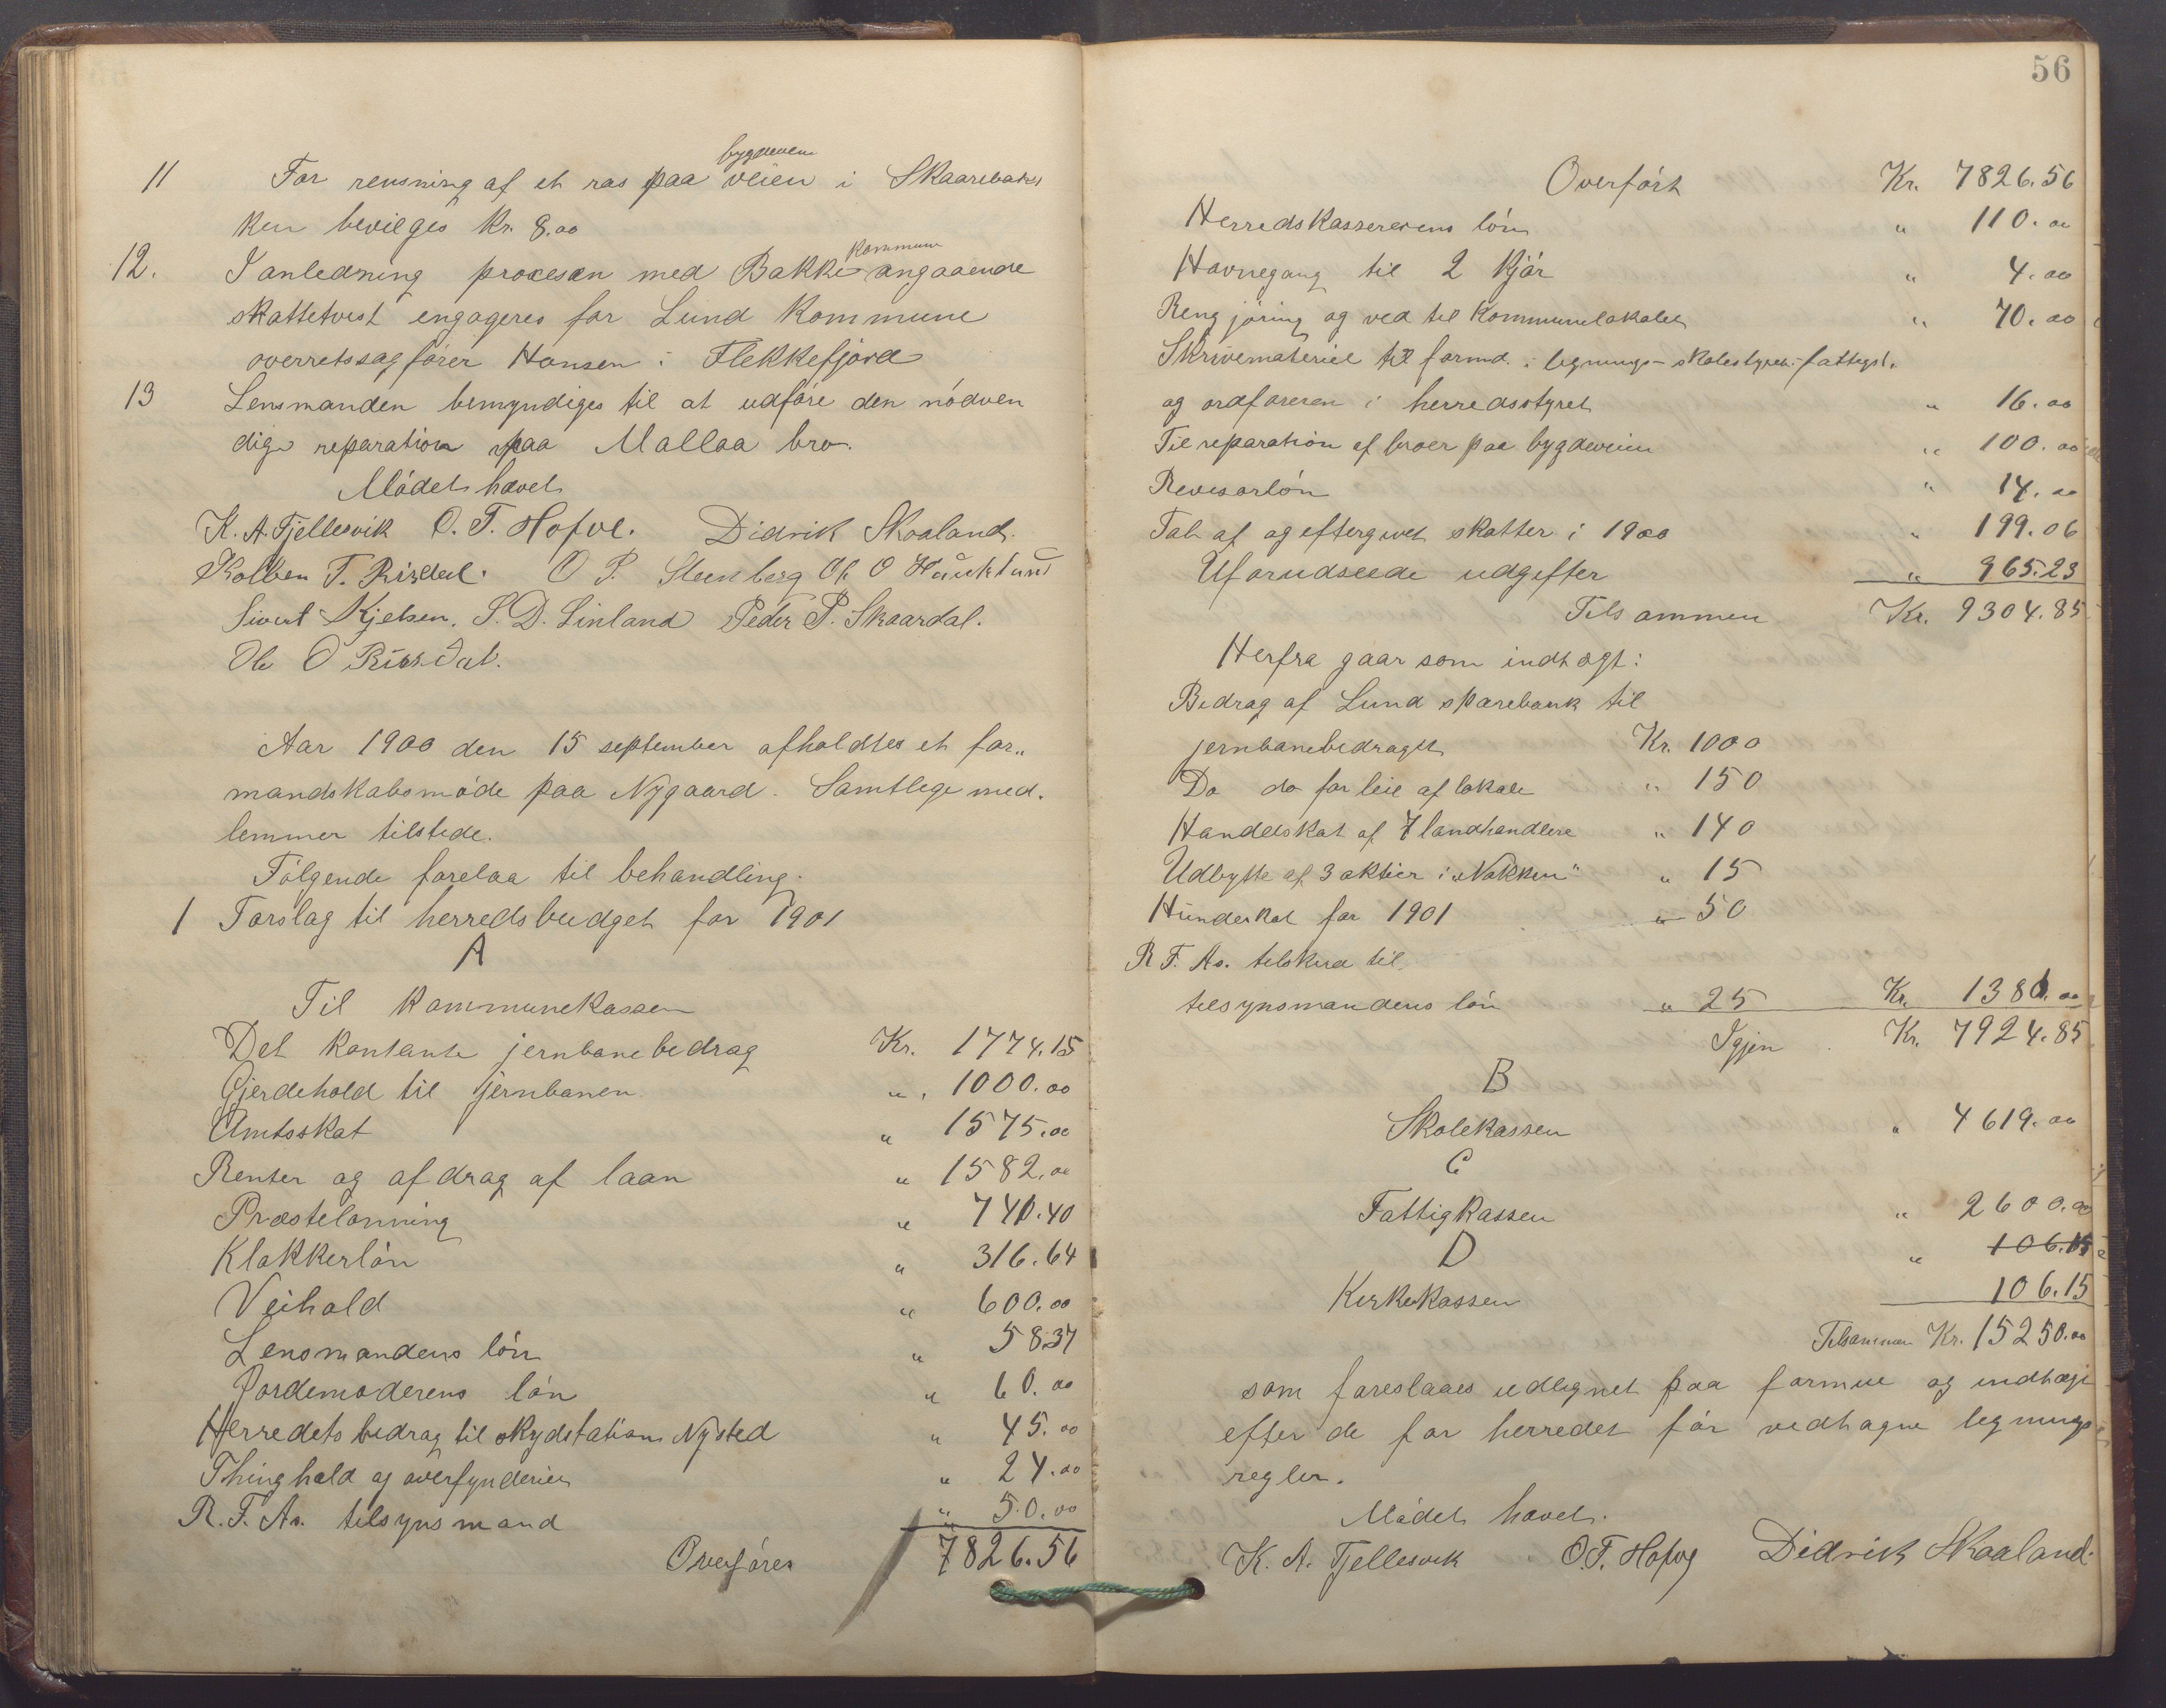 11 For rensning af et ras paa bygdeveien veien i Skaarebak
ken bevilges Kr. 8.00
12. I anledning procesen med Bakke kommune angaaende
skattetvist engageres for Lund Kommune
overretssagfører Hansen i Flekkefjord
13 Lensmanden bemyndiges til at udføre den nødven
dige reparation paa Mallaa bro.
Mødet hævet
K. A. Fjellesvik O. T. Hofve. Didrik Skaaland.
Kolben T. Risdal. O P. Steenberg Ole O Haukland
Sivert Kjelsen. S. D. Linland Peder P. Skaardal.
Ole O Risdal.
Aar 1900 den 15 september afholdtes et for„
mandskabsmøde paa Nygaard. Samtlege med.
lemmer tilstede.
Følgende forelaa til behandling.
1 Forslag til herredsbudget for 1901
A
Til Kommunekassen
Det kontante jernbanebedrag Kr. 1774.15
Gjerdehold til jernbanen „ 1000.00
Amtsskat „ 1575.00
Renter og afdrag af laan „ 1582.00
Præstelønning „ 740.40
Klokkerløn „ 316.64
Veihold „ 600.00
Lensmandens løn „ 58.37
Jordemoderens løn „ 60.00
Herredets bedrag til skydstation Nysted „ 45.00
Thinghold og overfynderien „ 24.00
R. F. As. tilsynsmand „ 50.00
Overføres 7826.56
56
Overført Kr. 7826.56
Herredskassererens løn „ 110.00
Havnegang til 2 Kjør „ 4.00
Rengjøring og ved til Kommunelokalet „ 70.00
Skrivemateriel til formd. : legnings- skolestyret- fattigst.
og ordføreren i herredsstyret „ 16.00
Til reparation af broer paa bygdeveien „ 100.00
Revisorløn „ 14.00
Tab af og eftergivet skatter i 1900 „ 199.06
Uforudseede udgefter „ 965.23
Tilsammen Kr. 9304.85
Herfra gaar som indtægt:
Bedrag af Lund sparebank til
jernbanebedraget Kr. 1000
Do do for leie af lokale „ 150
Handelskat af 7 landhandlere „ 140
Udbytte af 3 aktier i „Nøkken" „ 15
Hundeskat for 1901 „ 50
R F. As. tilskud til
tilsynsmandens løn „ 25 Kr. 1380.00
Igjen Kr. 7924.85
B
Skolekassen „ 4619.00
C
Fattigkassen „ 2600.00
D „ 106.15
Kirkekassen 106.15
Tilsammen Kr. 15250.00
som foreslaaes udlignet paa formue og indtægt
efter de for herredet før vedtagne legnings
regler.
Mødet hævet.
K. A. Fjellesvik O. T. Hofve Didrik Skaaland.